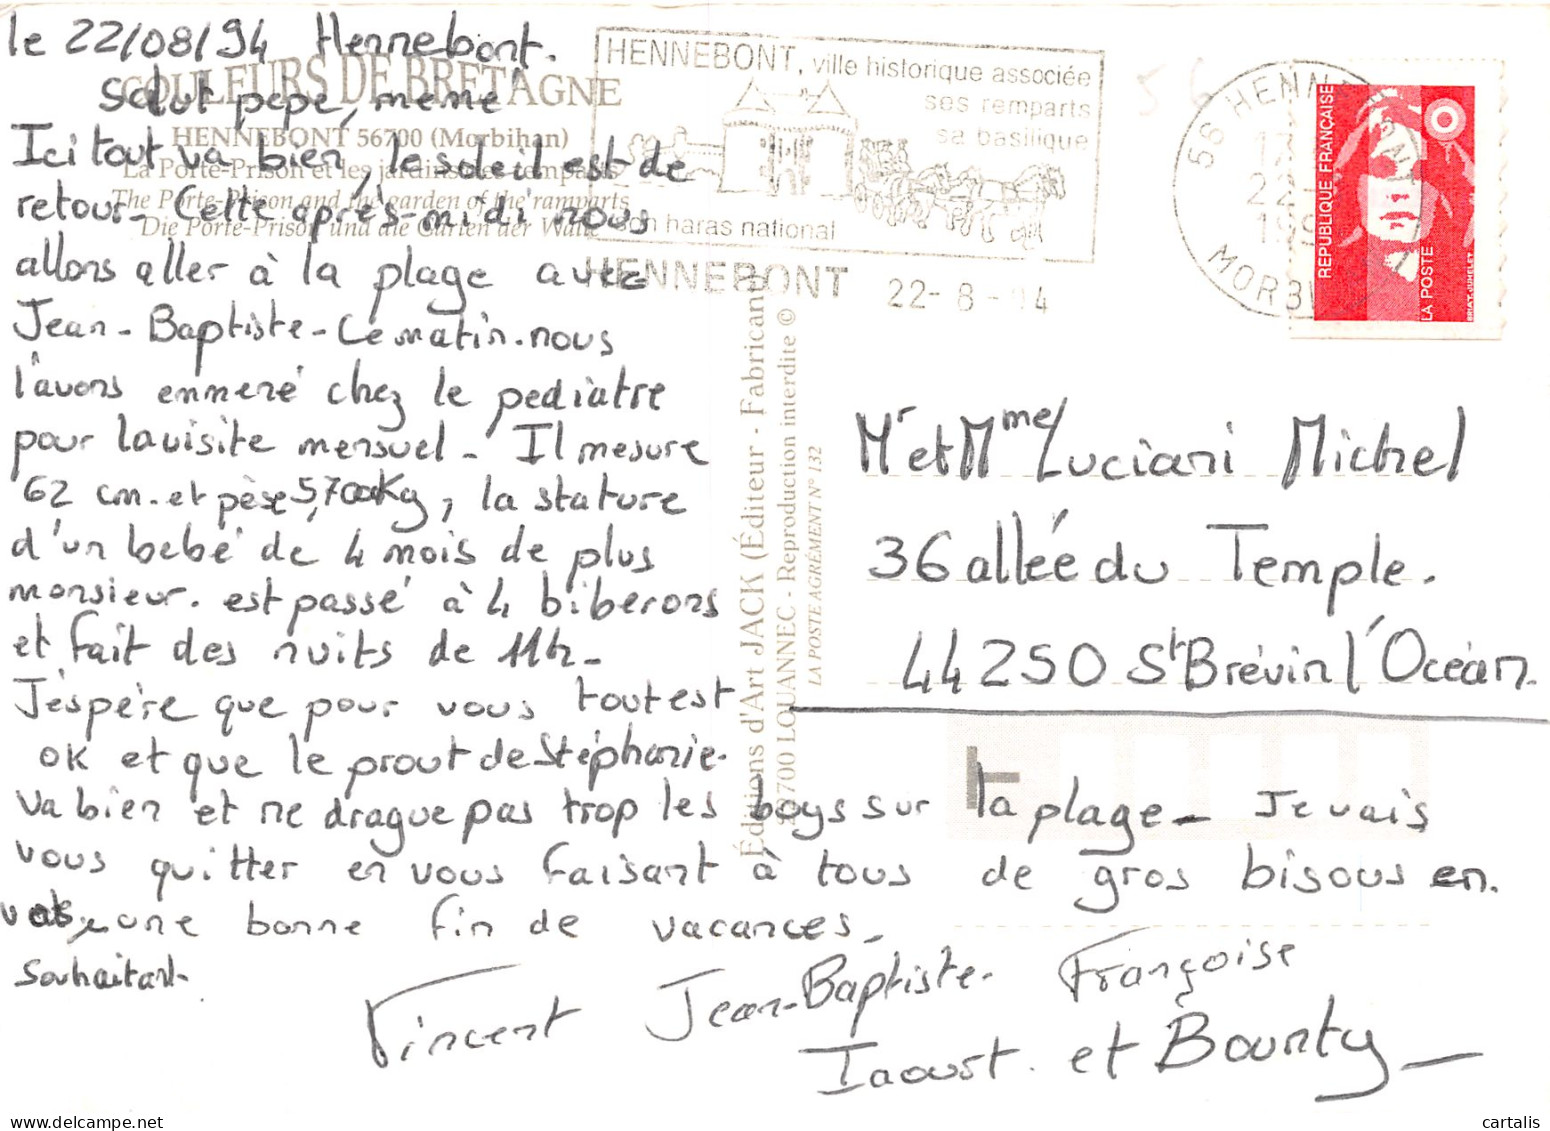 le 22/08/94 Hennebont.
Salut pépé, mémé
Ici tout va bien, le soleil est de
retour. Cette après-midi nous
allons aller à la plage avec
Jean-Baptiste. Ce matin nous
l'avons emmené chez le pediatre
pour la visite mensuel. Il mesure
62 cm. et pèse 5,700Kg, la stature
d'un bébé de 4 mois de plus
monsieur. est passé à 4 biberons
et fait des nuits de 11h.
J'espère que pour vous tout est
OK et que le prout de Stéphanie
va bien et ne drague pas trop les boys sur la plage. Je vais
vous quitter en vous faisant à tous de gros bisous en
vous une bonne fin de vacances.
Souhaitant
Vincent Jean-Baptiste. Françoise
Iaoust. et Bounty
COULEURS DE BRETAGNE
HENNEBONT 56700 (Morbihan)
La Porte-Prison et les jardins des remparts
The Porte-Prison and the garden of the ramparts
Die Porte-Prison und die Gärten der Wälle
HENNEBONT, ville historique associée
ses remparts
sa basilique
son haras national
HENNEBONT 22-8-94
56 HENNEBONT
22-
MORBIHAN
RÉPUBLIQUE FRANÇAISE
LA POSTE
BRIAT-JUMELET
56
Éditions d'Art JACK (Éditeur - Fabricant)
22700 LOUANNEC - Reproduction interdite ©
LA POSTE AGRÉMENT N° 132
Mr et Mme Luciani Michel
36 allée du Temple.
44250 St Brévin l'Océan.
cartalis